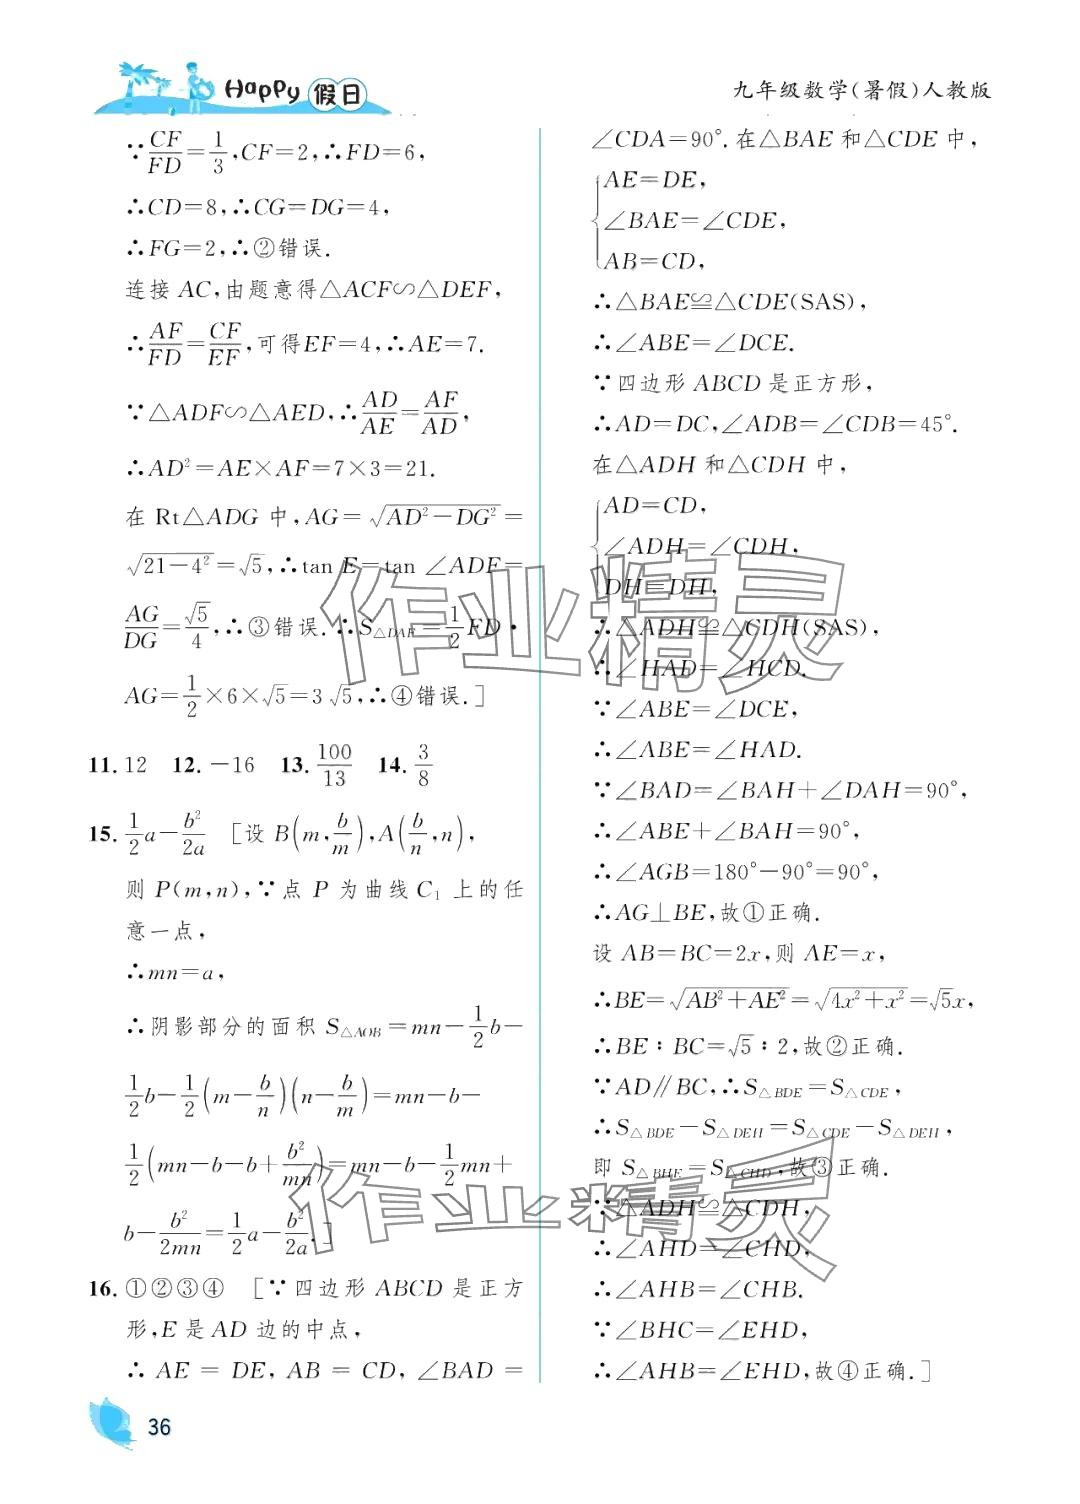 Happy 假日
九年级数学(暑假)人教版
∵CF/FD=1/3,CF=2,∴FD=6,
∴CD=8,∴CG=DG=4,
∴FG=2,∴②错误.
连接 AC,由题意得△ACF∽△DEF,
∴AF/FD=CF/EF,可得EF=4,∴AE=7.
∵△ADF∽△AED,∴AD/AE=AF/AD,
∴AD²=AE×AF=7×3=21.
在 Rt△ADG 中,AG=√(AD²-DG²)=
√(21-4²)=√5,∴tan E=tan ∠ADF=
AG/DG=√5/4,∴③错误.∴S△DAF=1/2FD·
AG=1/2×6×√5=3√5,∴④错误.]
11. 12 12. -16 13. 100/13 14. 3/8
15. 1/2a-b²/2a [设 B(m,b/m),A(b/n,n),
则 P(m,n),∵点 P 为曲线 C₁ 上的任
意一点,
∴mn=a,
∴阴影部分的面积 S△AOB=mn-1/2b-
1/2b-1/2(m-b/n)(n-b/m)=mn-b-
1/2(mn-b-b+b²/mn)=mn-b-1/2mn+
b-b²/2mn=1/2a-b²/2a.]
16. ①②③④ [∵四边形 ABCD 是正方
形,E 是 AD 边的中点,
∴ AE = DE, AB = CD, ∠BAD =
∠CDA=90°.在△BAE 和△CDE 中,
AE=DE,
∠BAE=∠CDE,
AB=CD,
∴△BAE≌△CDE(SAS),
∴∠ABE=∠DCE.
∵四边形 ABCD 是正方形,
∴AD=DC,∠ADB=∠CDB=45°.
在△ADH 和△CDH 中,
AD=CD,
∠ADH=∠CDH,
DH=DH,
∴△ADH≌△CDH(SAS),
∴∠HAD=∠HCD.
∵∠ABE=∠DCE,
∴∠ABE=∠HAD.
∵∠BAD=∠BAH+∠DAH=90°,
∴∠ABE+∠BAH=90°,
∴∠AGB=180°-90°=90°,
∴AG⊥BE,故①正确.
设 AB=BC=2x,则 AE=x,
∴BE=√(AB²+AE²)=√(4x²+x²)=√5x,
∴BE∶BC=√5∶2,故②正确.
∵AD∥BC,∴S△BDE=S△CDE,
∴S△BDE-S△DEH=S△CDE-S△DEH,
即 S△BHE=S△CHD,故③正确.
∵△ADH≌△CDH,
∴∠AHD=∠CHD,
∴∠AHB=∠CHB.
∵∠BHC=∠EHD,
∴∠AHB=∠EHD,故④正确.]
作业精灵
作业精灵
36